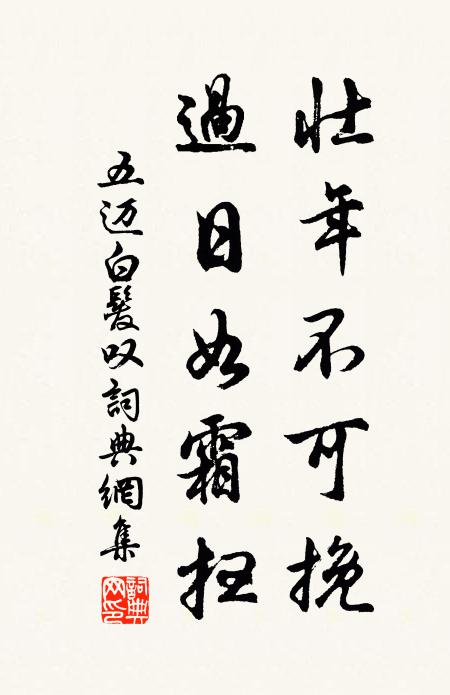 壮年不可挽
過日如霜扭
五迈白髮叹詞典網集
詞典网印